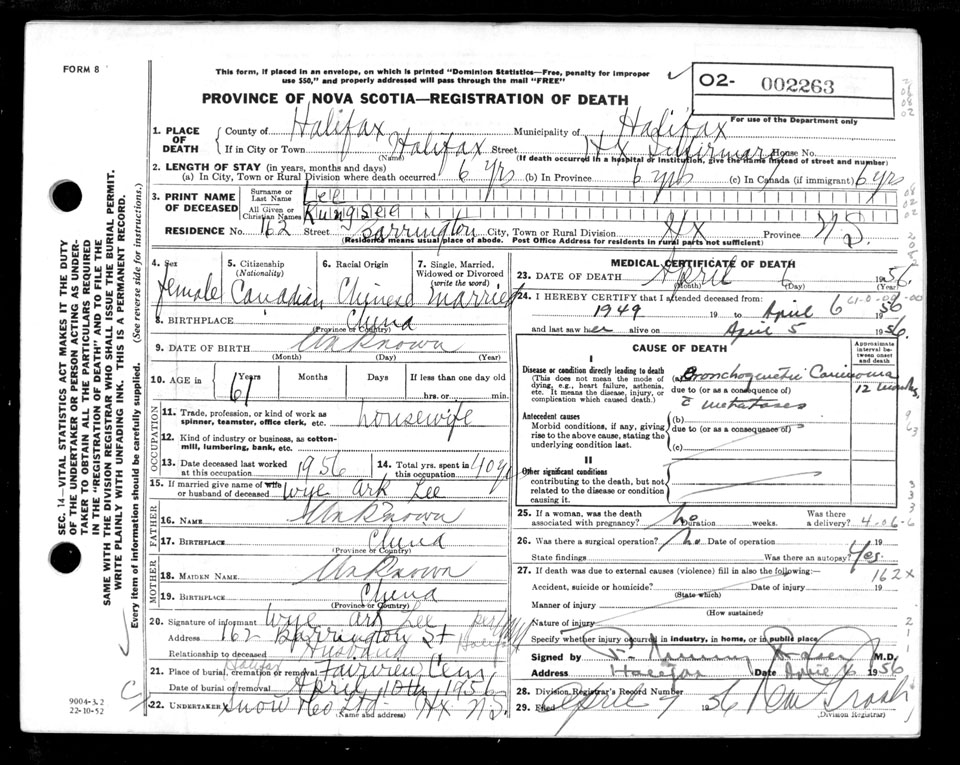 FORM 8
This form, if placed in an envelope, on which is printed "Dominion Statistics—Free, penalty for improper use $50," and properly addressed will pass through the mail "FREE"
O2- 002263
For use of the Department only
PROVINCE OF NOVA SCOTIA—REGISTRATION OF DEATH
1. PLACE OF DEATH { County of Halifax Municipality of Halifax
If in City or Town Halifax (Name) Street Hx Infirmary House No.
(If death occurred in a hospital or institution, give the name instead of street and number)
2. LENGTH OF STAY (in years, months and days)
(a) In City, Town or Rural Division where death occurred 6 yrs (b) In Province 6 yrs (c) In Canada (if immigrant) 6 yrs
3. PRINT NAME OF DECEASED { Surname or Last Name Lee
All Given or Christian Names Kungsee
RESIDENCE No. 162 Street Barrington City, Town or Rural Division Hx Province N.S.
(Residence means usual place of abode. Post Office Address for residents in rural parts not sufficient)
4. Sex 5. Citizenship (Nationality) 6. Racial Origin 7. Single, Married, Widowed or Divorced (write the word)
female Canadian Chinese married
8. BIRTHPLACE China
(Province or Country)
9. DATE OF BIRTH Unknown
(Month) (Day) (Year)
10. AGE in { Years Months Days If less than one day old
61 hrs. or min.
OCCUPATION
11. Trade, profession, or kind of work as spinner, teamster, office clerk, etc. housewife
12. Kind of industry or business, as cotton-mill, lumbering, bank, etc.
13. Date deceased last worked at this occupation 1956 14. Total yrs. spent in this occupation 40 yrs
15. If married give name of wife or husband of deceased Wye Ark Lee
FATHER
16. NAME Unknown
17. BIRTHPLACE China
(Province or Country)
MOTHER
18. MAIDEN NAME Unknown
19. BIRTHPLACE China
(Province or Country)
20. Signature of informant Wye Ark Lee per
Address 162 Barrington St Halifax
Relationship to deceased Husband
21. Place of burial, cremation or removal Halifax Fairview Cem
Date of burial or removal April 10th 1956
22. UNDERTAKER Snow & Co Ltd Hx N.S.
(Name and address)
MEDICAL CERTIFICATE OF DEATH
23. DATE OF DEATH April 6 1956
(Month) (Day) (Year)
24. I HEREBY CERTIFY that I attended deceased from:
61-0-09-00
1949 19 to April 6 1956
and last saw her alive on April 5 1956
CAUSE OF DEATH
Approximate interval between onset and death
I
Disease or condition directly leading to death (This does not mean the mode of dying, e.g., heart failure, asthenia, etc. It means the disease, injury, or complication which caused death.)
(a) Bronchogenetic Carcinoma 12 months
due to (or as a consequence of)
c metastases
Antecedent causes
Morbid conditions, if any, giving rise to the above cause, stating the underlying condition last.
(b)
due to (or as a consequence of)
(c)
II
Other significant conditions contributing to the death, but not related to the disease or condition causing it.
25. If a woman, was the death associated with pregnancy? No Duration weeks. Was there a delivery? 4-06-6
26. Was there a surgical operation? No Date of operation 19
State findings Was there an autopsy? Yes
27. If death was due to external causes (violence) fill in also the following:— 162X
Accident, suicide or homicide? Date of injury 19
(State which)
Manner of injury
(How sustained)
Nature of injury
Specify whether injury occurred in industry, in home, or in public place
Signed by M.D.
Address Halifax Date April 6 1956
28. Division Registrar's Record Number
29. Filed April 9 1956
(Division Registrar)
SEC. 14—VITAL STATISTICS ACT MAKES IT THE DUTY OF THE UNDERTAKER OR PERSON ACTING AS UNDERTAKER TO OBTAIN ALL THE PARTICULARS REQUIRED IN THE "REGISTRATION OF DEATH" AND TO FILE THE SAME WITH THE DIVISION REGISTRAR WHO SHALL ISSUE THE BURIAL PERMIT.
WRITE PLAINLY WITH UNFADING INK. THIS IS A PERMANENT RECORD.
Every item of information should be carefully supplied. (See reverse side for instructions.)
9004-3.2
22-10-52